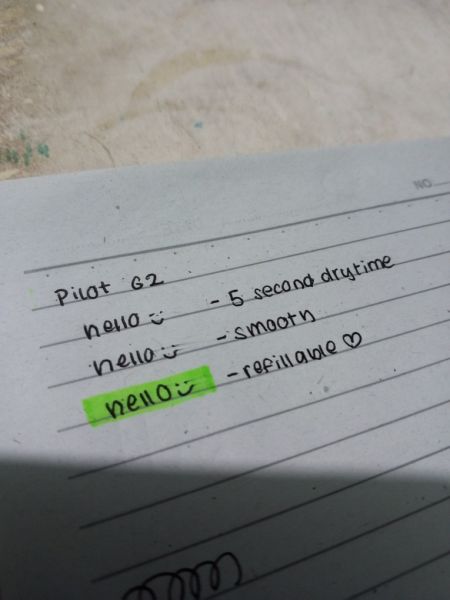 NO
Pilot G2
hello :) - 5 second drytime
hello :) - smooth
hello :) - refillable ♡